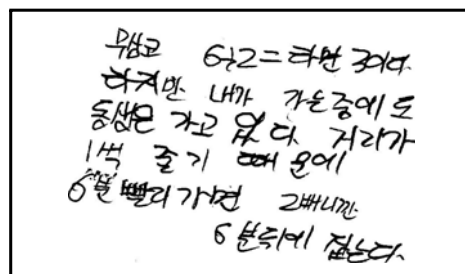 무심코 6÷2=하면 3이다.
하지만 내가 가는중에도
동생은 가고 있다. 거리가
1씩 줄기 때문에
6분 빨리가면 2배니깐
6분뒤에 잡는다.